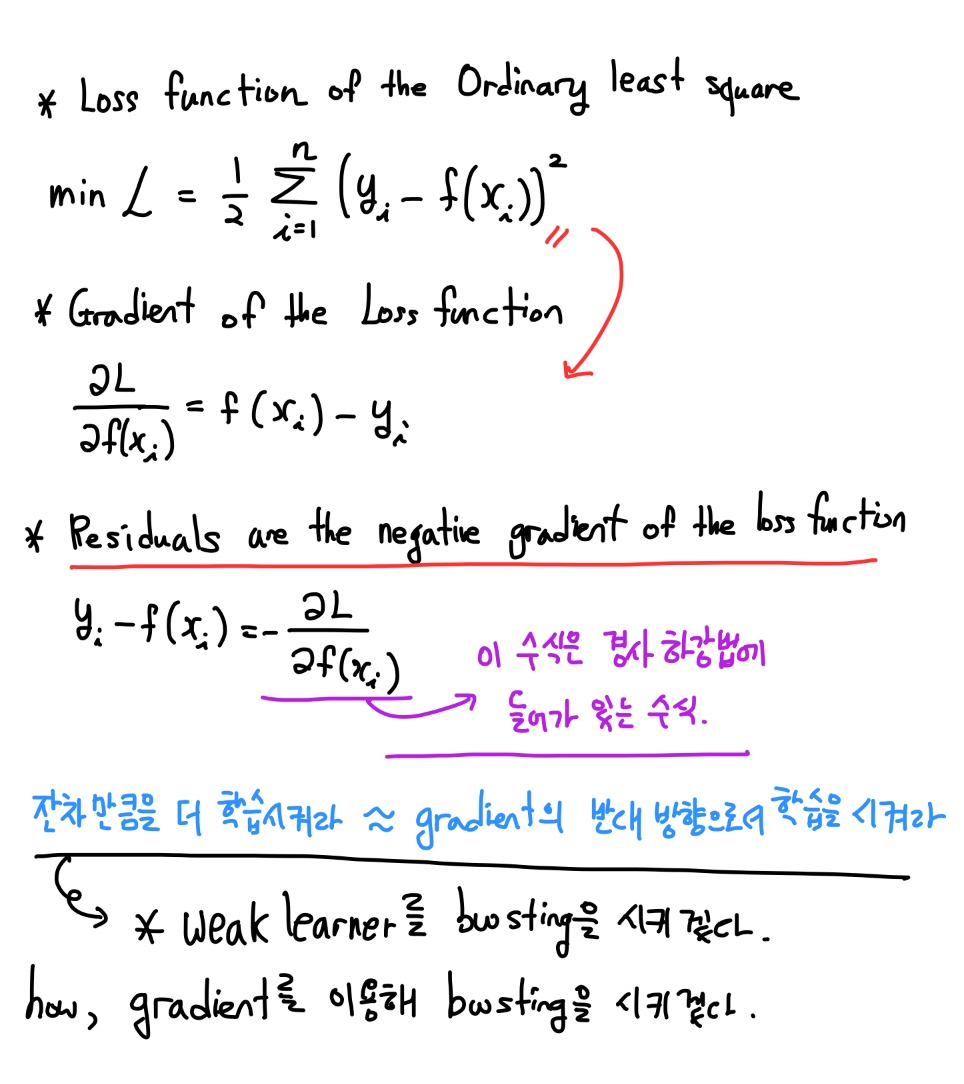 * Loss function of the Ordinary least square
min L = 1/2 ∑_{i=1}^{n} (y_i - f(x_i))^2
* Gradient of the Loss function
∂L/∂f(x_i) = f(x_i) - y_i
* Residuals are the negative gradient of the loss function
y_i - f(x_i) = - ∂L/∂f(x_i)
이 수식은 경사 하강법에
들어가 있는 수식.
잔차만큼을 더 학습시켜라 ≈ gradient의 반대 방향으로 학습을 시켜라
* weak learner를 boosting을 시키겠다.
how, gradient를 이용해 boosting을 시키겠다.